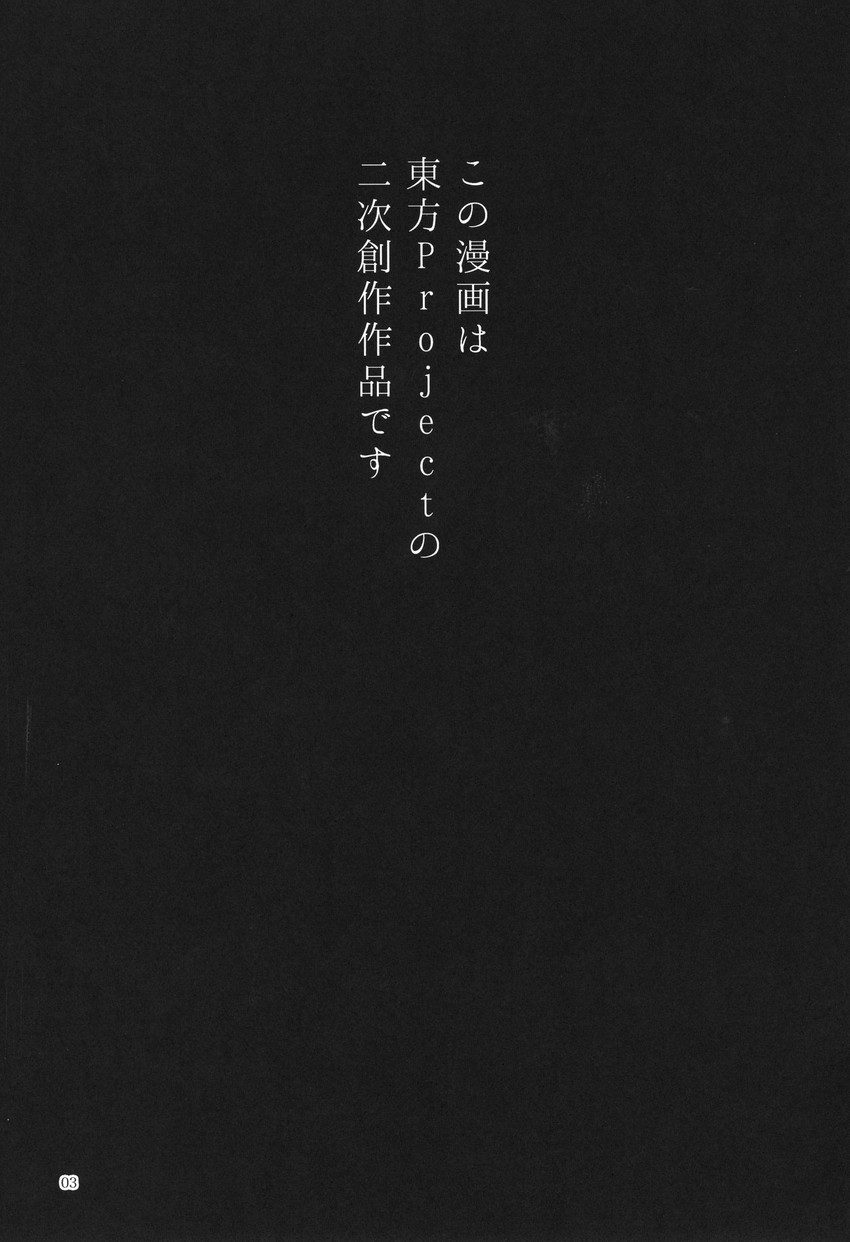 この漫画は
東方Projectの
二次創作作品です
03